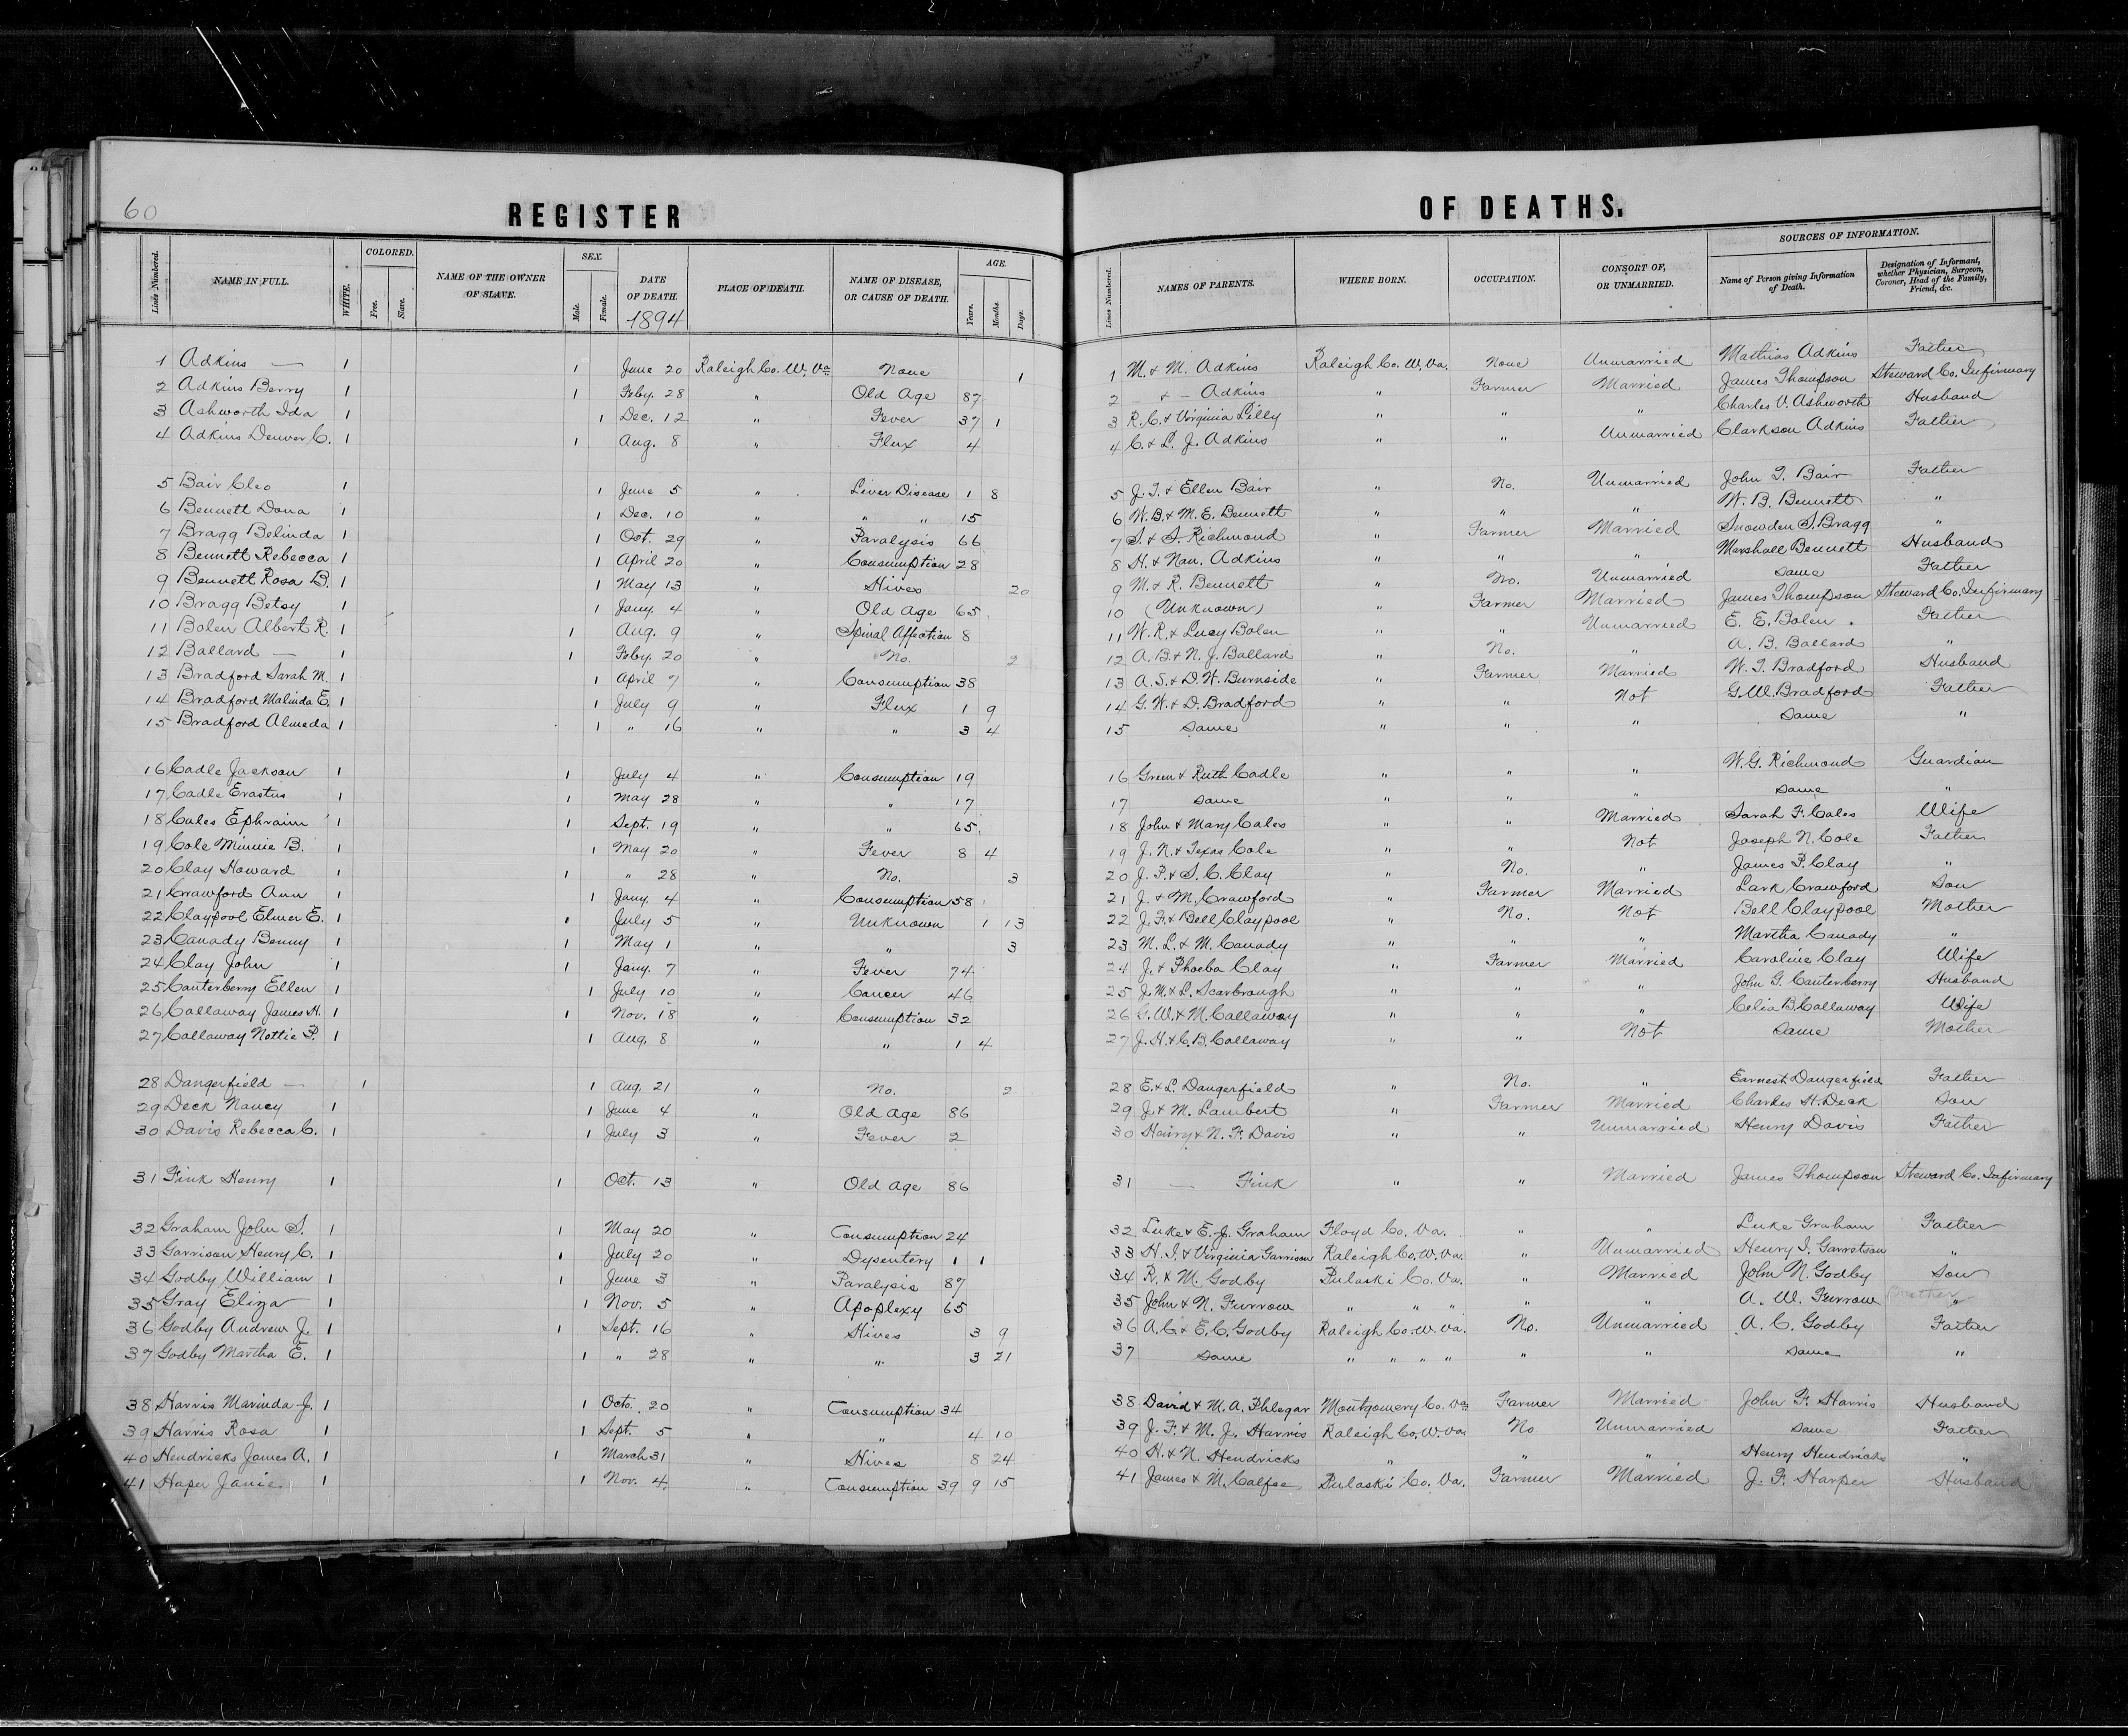 60
REGISTER
OF DEATHS.
Lines Numbered. NAME IN FULL. WHITE. COLORED. Free. Slave. NAME OF THE OWNER OF SLAVE. SEX. Male. Female. DATE OF DEATH. 1894 PLACE OF DEATH. NAME OF DISEASE, OR CAUSE OF DEATH. AGE. Years. Months. Days.
1 Adkins — 1 1 June 20 Raleigh Co. W. Va None 1
2 Adkins Berry 1 1 Feby. 28 " Old Age 87
3 Ashworth Ida 1 1 Dec. 12 " Fever 37 1
4 Adkins Denver C. 1 1 Aug. 8 " Flux 4
5 Bair Cleo 1 1 June 5 " Liver Disease 1 8
6 Bennett Dona 1 1 Dec. 10 " " " 15
7 Bragg Belinda 1 1 Oct. 29 " Paralysis 66
8 Bennett Rebecca 1 1 April 20 " Consumption 28
9 Bennett Rosa B. 1 1 May 13 " Hives 20
10 Bragg Betsy 1 1 Jany. 4 " Old Age 65
11 Bolen Albert R. 1 1 Aug. 9 " Spinal Affection 8
12 Ballard — 1 1 Feby. 20 " No. 2
13 Bradford Sarah M. 1 1 April 7 " Consumption 38
14 Bradford Malinda E. 1 1 July 9 " Flux 1 9
15 Bradford Almeda 1 1 " 16 " " 3 4
16 Cadle Jackson 1 1 July 4 " Consumption 19
17 Cadle Erastus 1 1 May 28 " " 17
18 Cales Ephraim 1 1 Sept. 19 " " 65
19 Cole Minnie B. 1 1 May 20 " Fever 8 4
20 Clay Howard 1 1 " 28 " No. 3
21 Crawford Ann 1 1 Jany. 4 " Consumption 58
22 Claypool Elmer E. 1 1 July 5 " Unknown 1 13
23 Canady Benny 1 1 May 1 " " 3
24 Clay John 1 1 Jany. 7 " Fever 74
25 Canterberry Ellen 1 1 July 10 " Cancer 46
26 Callaway James H. 1 1 Nov. 18 " Consumption 32
27 Callaway Nottie P. 1 1 Aug. 8 " " 1 4
28 Dangerfield — 1 1 Aug. 21 " No. 2
29 Deck Nancy 1 1 June 4 " Old Age 86
30 Davis Rebecca C. 1 1 July 3 " Fever 2
31 Fink Henry 1 1 Oct. 13 " Old Age 86
32 Graham John S. 1 1 May 20 " Consumption 24
33 Garrison Henry C. 1 1 July 20 " Dysentery 1 1
34 Godby William 1 1 June 3 " Paralysis 87
35 Gray Eliza 1 1 Nov. 5 " Apoplexy 65
36 Godby Andrew J. 1 1 Sept. 16 " Hives 3 9
37 Godby Martha E. 1 1 " 28 " " 3 21
38 Harris Marinda J. 1 1 Octo. 20 " Consumption 34
39 Harris Rosa 1 1 Sept. 5 " " 4 10
40 Hendricks James A. 1 1 March 31 " Hives 8 24
41 Haper Janie 1 1 Nov. 4 " Consumption 39 9 15
Lines Numbered. NAMES OF PARENTS. WHERE BORN. OCCUPATION. CONSORT OF, OR UNMARRIED. SOURCES OF INFORMATION. Name of Person giving Information of Death. Designation of Informant, whether Physician, Surgeon, Coroner, Head of the Family, Friend, &c.
1 M. & M. Adkins Raleigh Co. W. Va. None Unmarried Mathias Adkins Father
2 — & — Adkins " Farmer Married James Thompson Steward Co. Infirmary
3 R. C. & Virginia Lilly " " " Charles V. Ashworth Husband
4 C. & L. J. Adkins " " Unmarried Clarkson Adkins Father
5 J. T. & Ellen Bair " No. Unmarried John T. Bair Father
6 W. B. & M. E. Bennett " " " W. B. Bennett "
7 S. & S. Richmond " Farmer Married Snowden S. Bragg "
8 H. & Nan. Adkins " " " Marshall Bennett Husband
9 M. & R. Bennett " No. Unmarried Same Father
10 (Unknown) " Farmer Married James Thompson Steward Co. Infirmary
11 W. R. & Lucy Bolen " " Unmarried E. E. Bolen Father
12 A. B. & N. J. Ballard " No. " A. B. Ballard "
13 A. S. & D. W. Burnside " Farmer Married W. T. Bradford Husband
14 G. W. & D. Bradford " " Not G. W. Bradford Father
15 Same " " " Same "
16 Green & Ruth Cadle " " " W. G. Richmond Guardian
17 Same " " " Same "
18 John & Mary Cales " " Married Sarah F. Cales Wife
19 J. N. & Texas Cole " " Not Joseph N. Cole Father
20 J. P. & S. C. Clay " No. " James P. Clay "
21 J. & M. Crawford " Farmer Married Lark Crawford Son
22 J. F. & Bell Claypool " No. Not Bell Claypool Mother
23 M. L. & M. Canady " " " Martha Canady "
24 J. & Phoeba Clay " Farmer Married Caroline Clay Wife
25 J. M. & L. Scarbrough " " " John G. Canterberry Husband
26 G. W. & M. Callaway " " " Celia B. Callaway Wife
27 J. H. & C. B. Callaway " " Not Same Mother
28 E. & L. Dangerfield " No. " Earnest Dangerfield Father
29 J. & M. Lambert " Farmer Married Charles H. Deck Son
30 Henry & N. F. Davis " " Unmarried Henry Davis Father
31 — Fink " " Married James Thompson Steward Co. Infirmary
32 Luke & E. J. Graham Floyd Co. Va. " " Luke Graham Father
33 H. I. & Virginia Garrison Raleigh Co. W. Va. " Unmarried Henry I. Garretson "
34 R. & M. Godby Pulaski Co. Va. " Married John N. Godby Son
35 John & N. Furrow " " " " " A. W. Furrow Brother "
36 A. C. & E. C. Godby Raleigh Co. W. Va. No. Unmarried A. C. Godby Father
37 Same " " " " " " Same "
38 David & M. A. Phlegar Montgomery Co. Va. Farmer Married John F. Harris Husband
39 J. F. & M. J. Harris Raleigh Co. W. Va. No Unmarried Same Father
40 H. & N. Hendricks " " " Henry Hendricks "
41 James & M. Calfee Pulaski Co. Va. Farmer Married J. F. Harper Husband